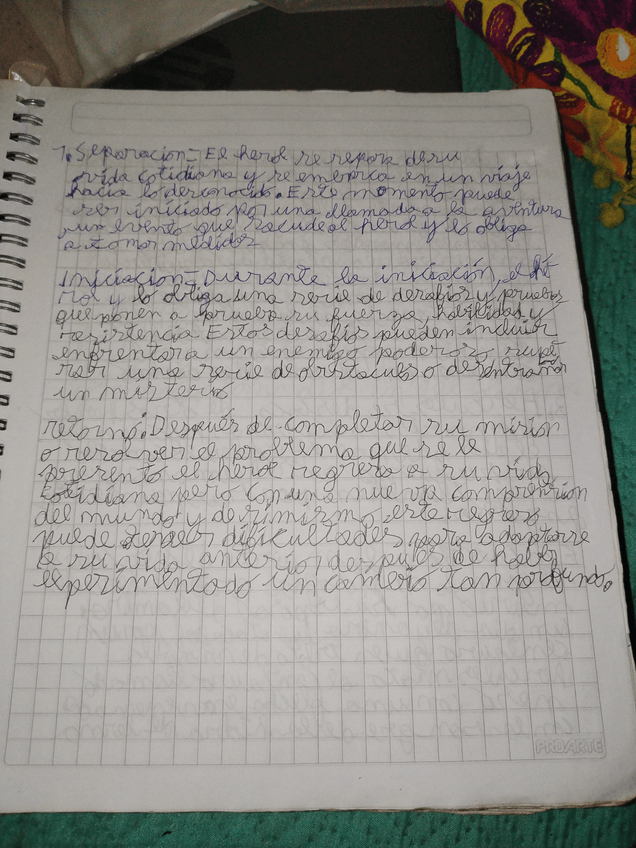 1. Separacion- El heroe se separa de su
vida cotidiana y se embarca en un viaje
hacia lo desconocido. Este momento puede
ser iniciado por una llamada a la aventura
un evento que sacude al heroe y lo obliga
a tomar medidas
Iniciacion- Durante la iniciación, el hé
roa y lo obliga una serie de desafíos y pruebas
que ponen a prueba su fuerza, habilidad y
resistencia. Estos desafios pueden incluir
enfrentar a un enemigo poderoso, supe
rar una serie de obstaculos o desentrañar
un misterio
retorno: Después de completar su misión
o resolver el problema que se le
presento el heroe regresa a su vida
cotidiana pero con una nueva comprension
del mundo y de si mismo, este regreso
puede tener dificultades para adaptarse
a su vida anterior despues de haber
experimentado un cambio tan profundo.
PROARTE